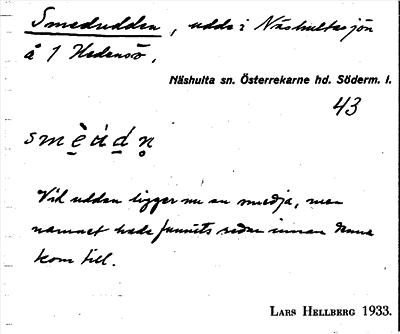 Smedudden, udde i Näshultasjön
å 1 Hedensö.
Näshulta sn. Österrekarne hd. Söderm. l.
43
smèu̇dn̥
Vid udden ligger nu en smedja, men
namnet hade funnits redan innan denna
kom till.
LARS HELLBERG 1933.